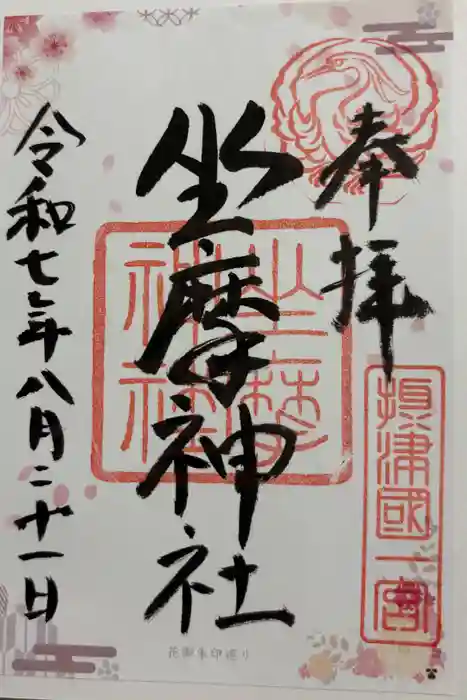 奉拝
摂津國一宮
坐摩神社
坐摩神社
令和七年八月二十一日
花御朱印巡り